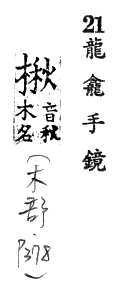 21龍龕手鏡
楸音秋木名
(木部 P378)